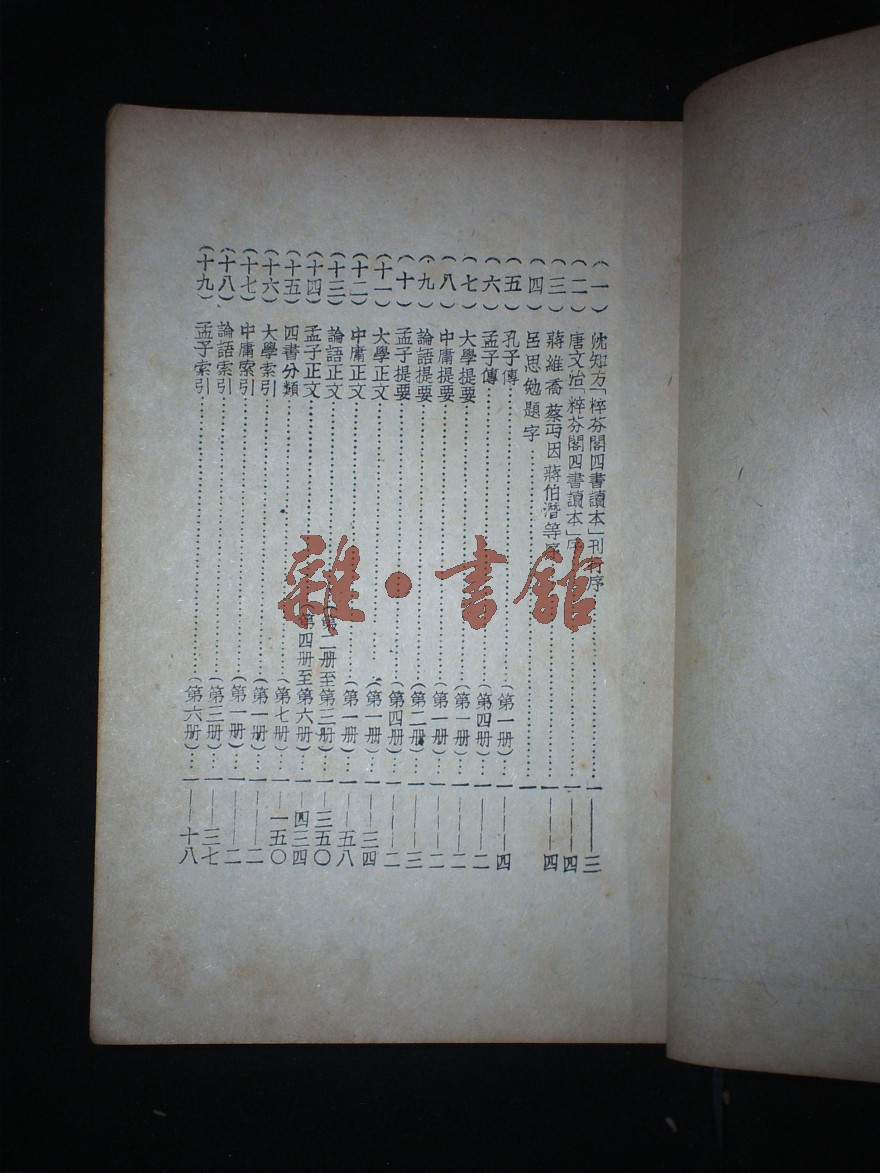 (一) 沈知方「粹芬閣四書讀本」刊行序……一——三
(二) 唐文治「粹芬閣四書讀本」序……一——四
(三) 蔣維喬 蔡丏因 蔣伯潛等序……一——四
(四) 呂思勉題字……一
(五) 孔子傳……(第一册)…一——四
(六) 孟子傳……(第四册)…一——二
(七) 大學提要……(第一册)…一——二
(八) 中庸提要……(第一册)…一——二
(九) 論語提要……(第二册)…一——三
(十) 孟子提要……(第四册)…一——二
(十一) 大學正文……(第一册)…一——三四
(十二) 中庸正文……(第一册)…一——五八
(十三) 論語正文……(第二册至第三册)…一——三五〇
(十四) 孟子正文……(第四册至第六册)…一——四三四
(十五) 四書分類……(第七册)…一——一五〇
(十六) 大學索引……(第一册)…一——二
(十七) 中庸索引……(第一册)…一——二
(十八) 論語索引……(第三册)…一——三七
(十九) 孟子索引……(第六册)…一——十八
雜·書館